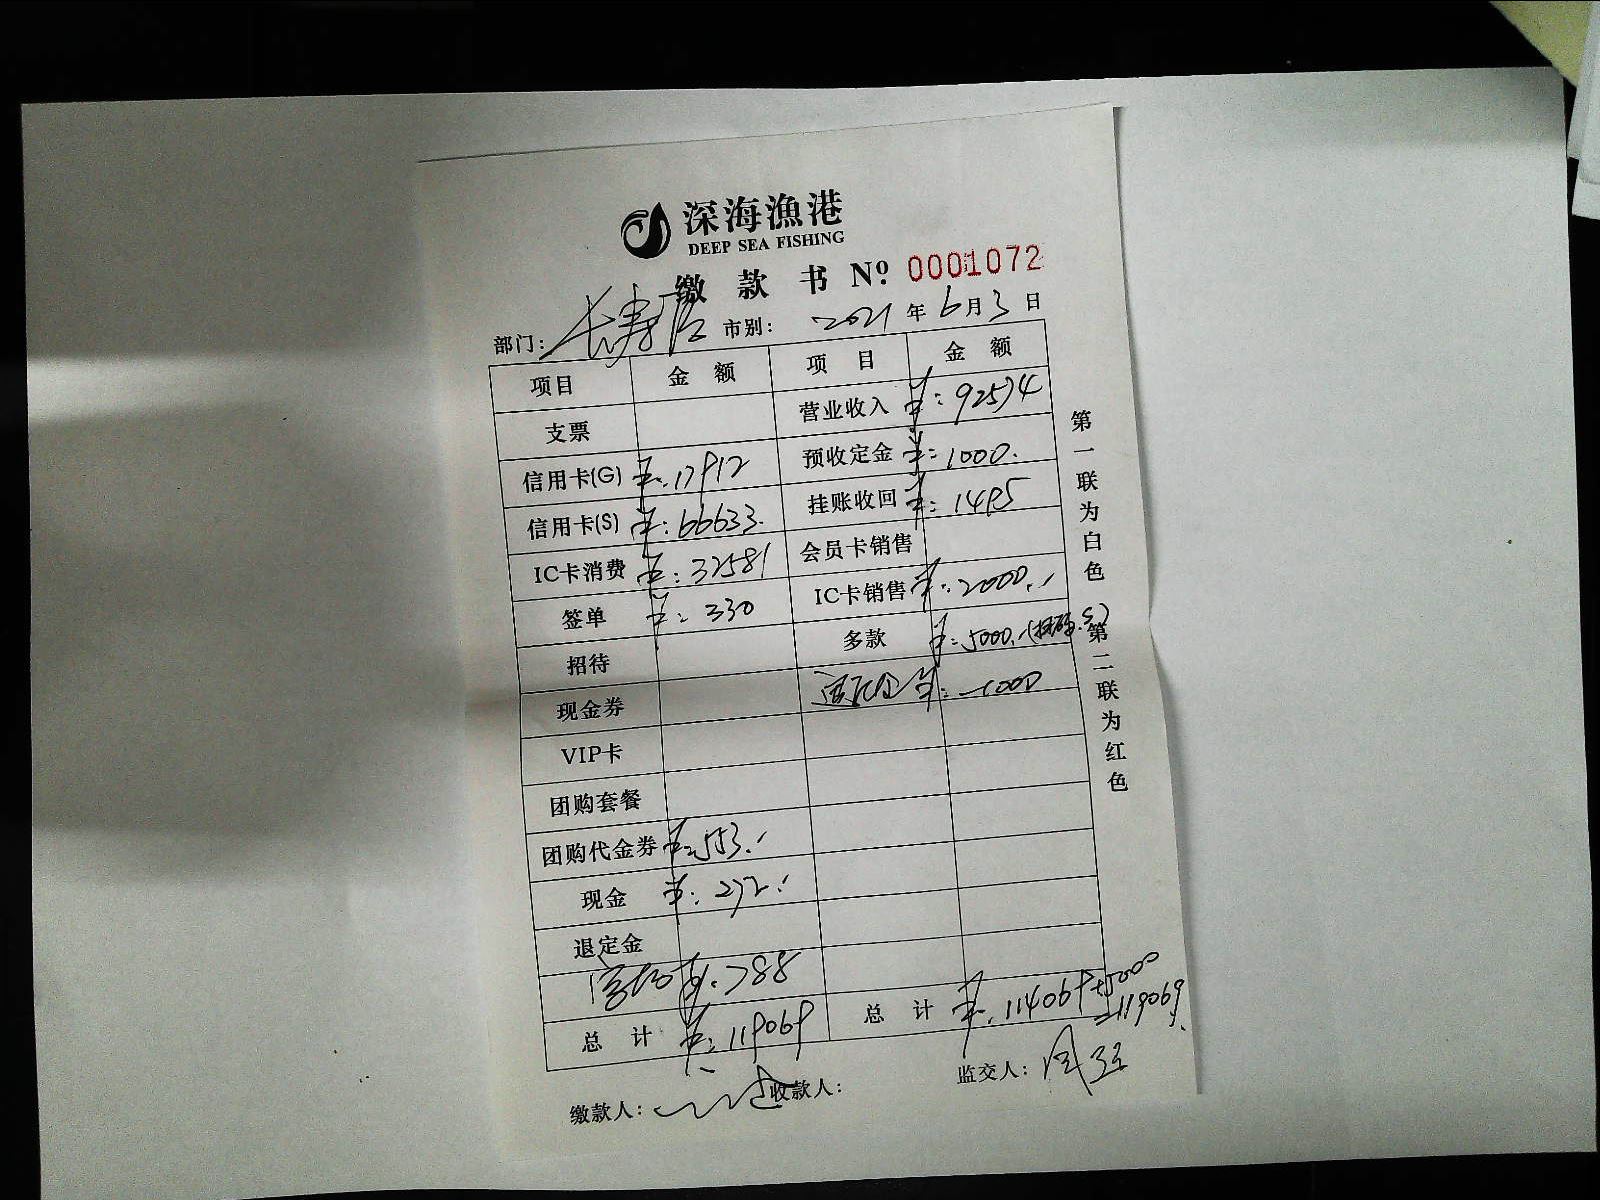 深海漁港
DEEP SEA FISHING
缴款书 Nº. 0001072
部门: 长寿店 市别: 2021年6月3日
项目 金额 项目 金额
支票 营业收入 ¥:92574
信用卡(G) ¥:17912 预收定金 ¥:1000.
信用卡(S) ¥:66633. 挂账收回 ¥:1495
IC卡消费 ¥:32581 会员卡销售
签单 ¥:330 IC卡销售 ¥:20000.-
招待 多款 ¥:5000.-(扫码.S)
现金券 退定金 ¥:-1000
VIP卡
团购套餐
团购代金券 ¥:553.-
现金 ¥:272.-
退定金
¥:788
总计 ¥:119069 总计 ¥:114069+5000
=119069.
缴款人: 收款人: 监交人:
第一联为白色 第二联为红色